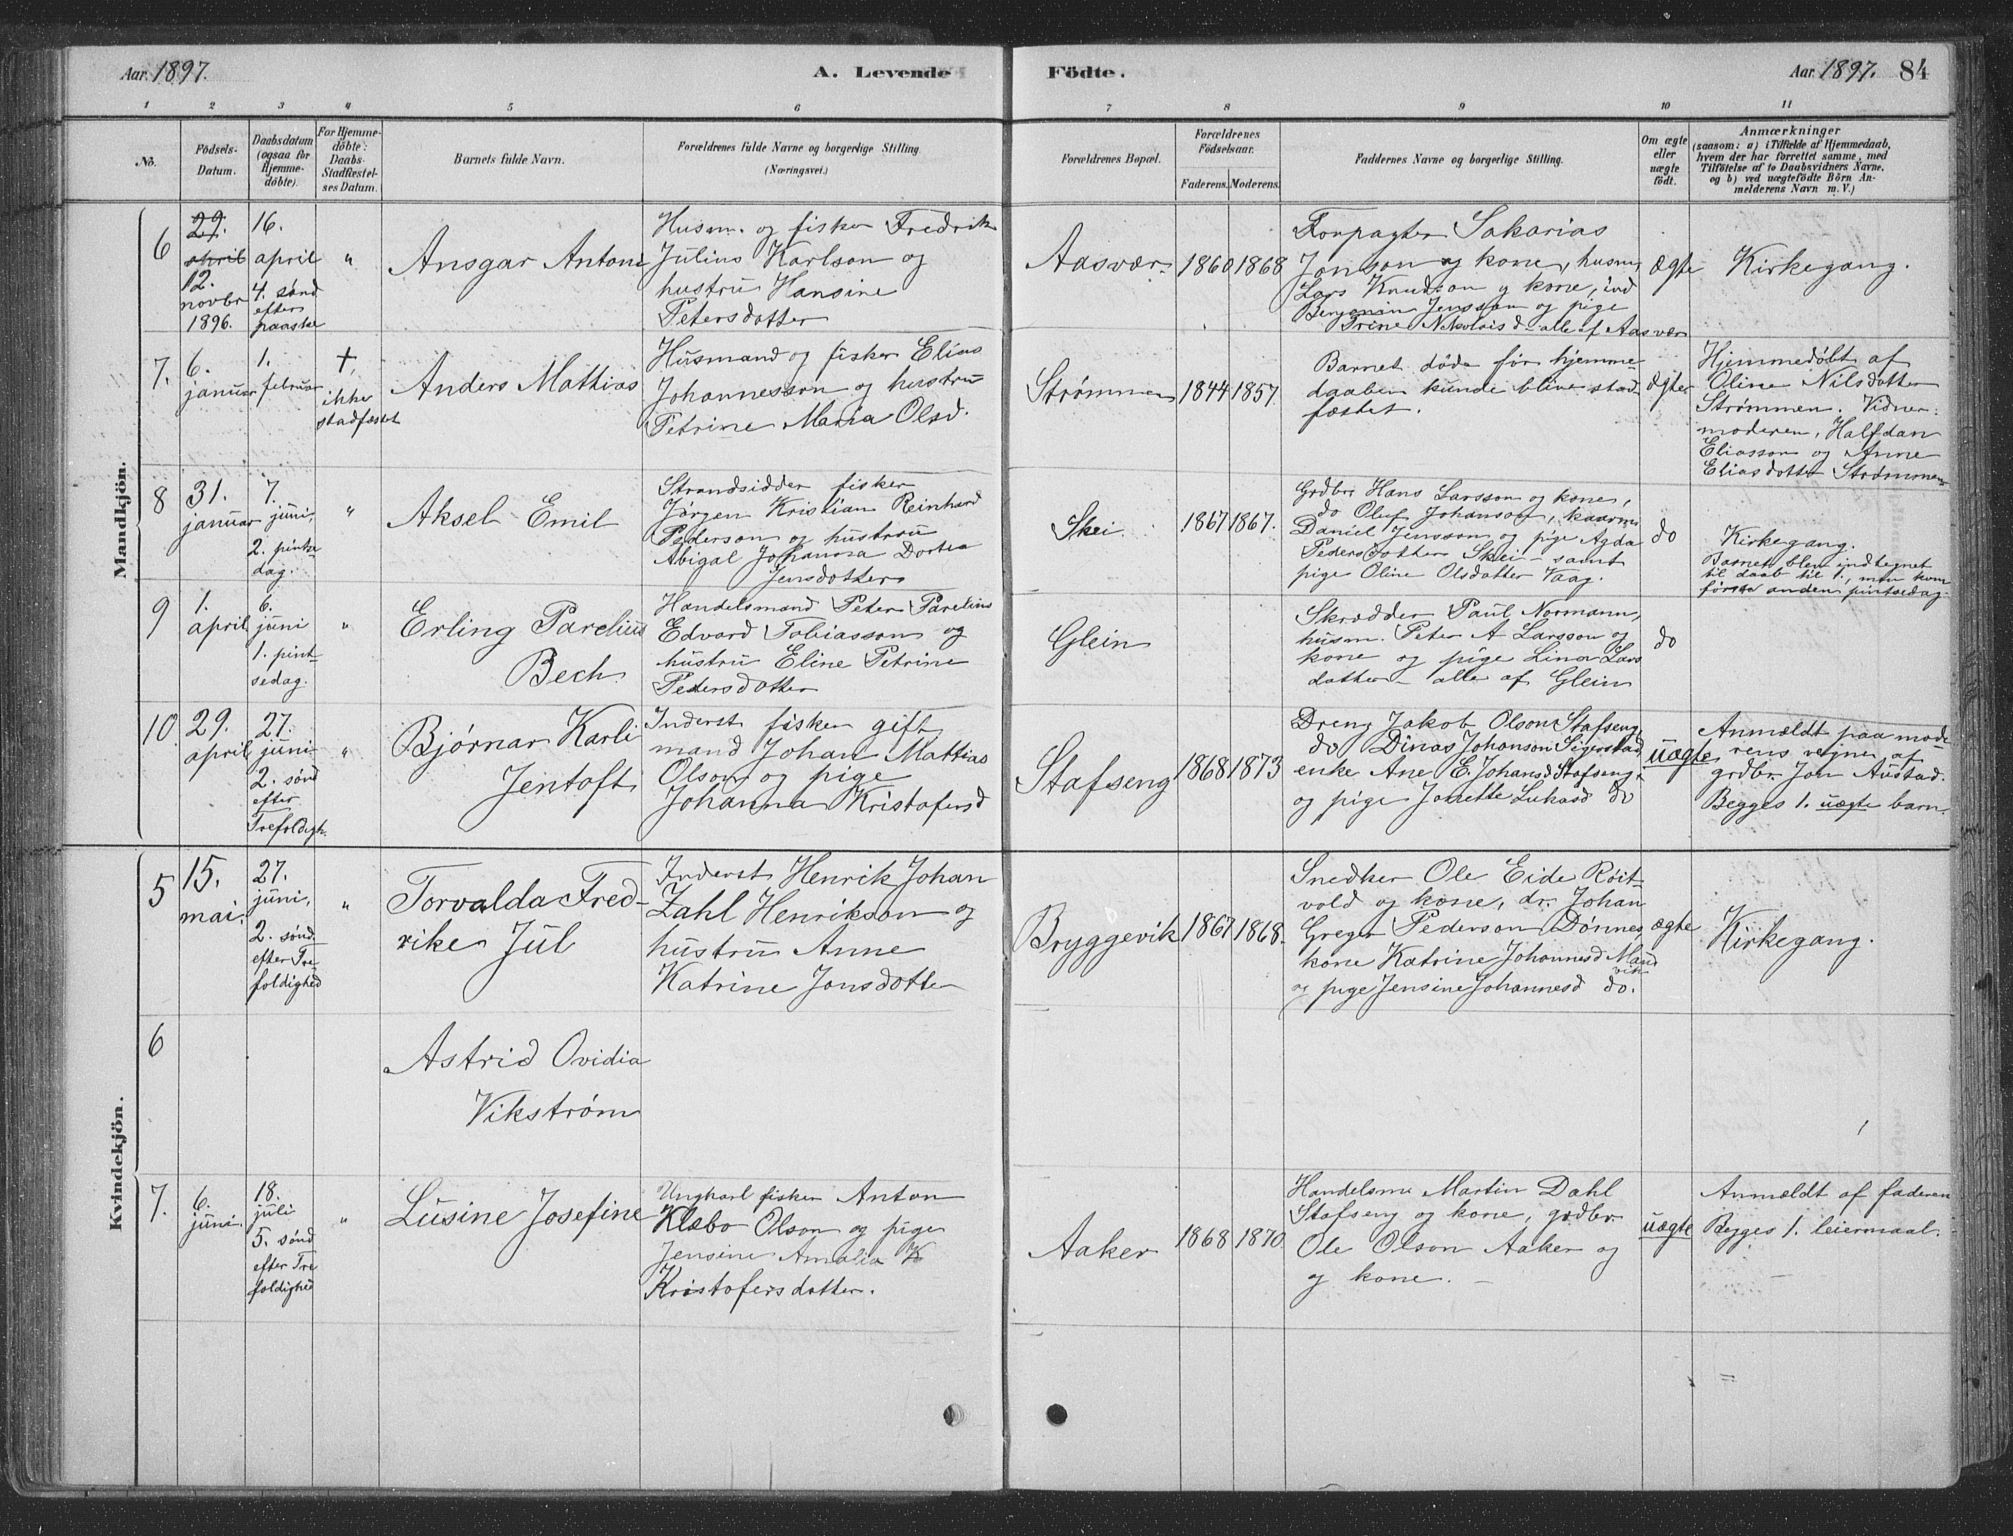 Aar 1897.
A. Levende Födte.
Aar 1897. 84
1 2 3 4 5 6 7 8 9 10 11
No.
Födsels-Datum.
Daabsdatum (ogsaa for Hjemmedöbte).
For Hjemmedöbte: Daabs-Stadfæstelses Datum.
Barnets fulde Navn.
Forældrenes fulde Navne og borgerlige Stilling.
(Næringsvei.)
Forældrenes Bopæl.
Forældrenes Födselsaar.
Faderens. Moderens.
Faddernes Navne og borgerlige Stilling.
Om ægte eller uægte födt.
Anmærkninger
(saasom: a) i Tilfælde af Hjemmedaab,
hvem der har forrettet samme, med
Tilföielse af to Daabsvidners Navne,
og b) ved uægtefödte Börn Anmelderens Navn m. V.)
Mandkjön.
6
29. april
12. novbr 1896.
16. april
4. sønd efter paaske
"
Ansgar Anton
Husm. og fisker Fredrik
Julius Karlson og
hustru Hansine
Petersdotter
Aasvær
1860 1868
Forpagter Sakarias
Jonson og kone, husm,
Lars Knudson og kone, ind
Benjamin Jensson og pige
Trine Nikolaisd - alle af Aasvær
ægte
Kirkegang.
7.
6. januar
1. februar
+, ikke stadfæstet
Anders Mattias
Husmand og fisker Elias
Johannesson og hustru
Petrine Maria Olsd.
Strømmen
1844 1857
Barnet døde før hjemme
daaben kunde blive stad
fæstet.
ægte
Hjemmedøbt af
Oline Nilsdotter
Strømmen. Vidner:
moderen, Halfdan
Eliasson og Anne
Eliasdotter Strømmen
8
31. januar
7. juni,
2. pintse
dag.
"
Aksel Emil
Strandsidder fisker
Jørgen Kristian Reinhard
Pederson og hustru
Abigal Johanna Dortea
Jensdotter
Skei
1867 1867.
Grdbr Hans Larsson og kone,
do Oluf Johanson,
Daniel Jensson og pige Agda
Pedersdotter Skei - samt
pige Oline Olsdatter Vaag.
do
Kirkegang.
Barnet blev indtegnet
til daab til 1., men kom
første anden pintsedag
9
1. april
6. juni
1. pint
sedag.
"
Erling Parelius
Bech
Handelsmand Peter Parelius
Edvard Tobiasson og
hustru Eline Petrine
Pedersdotter
Glein
Skrædder Paul Normann,
husm. Peter A Larsson og
kone og pige Lina Lars
datter - alle af Glein
do
10.
29. april
27. juni
2. sønd
efter
Trefoldigh.
"
Bjørnar Karli
Jentoft
Inderst fisker gift
mand Johan Mattias
Olson og pige
Johanna Kristofersd
Stafseng
1868 1873
Dreng Jakob Olson Stafseng
do Dinas Johanson Sigerstad
enke Ane E. Johansd Stafseng
og pige Jonette Lukasd do
uægte
Anmeldt paa mode
rens vegne af
grdbr. Jon Austad.
Begges 1. uægte barn.
Kvindekjön.
5
15. mai.
27. juni,
2. sønd.
efter Tre
foldighed
"
Torvalda Fred-
rike Jul
Inderst Henrik Johan
Zahl Henrikson og
hustru Anne
Katrine Jonsdotter
Bryggevik
1867 1868.
Snedker Ole Eide Røit-
vold og kone, dr. Johan
Greger Pederson Dønnes
kone Katrine Johannesd Mand
vik
og pige Jensine Johannesd do.
ægte
Kirkegang.
6
Astrid Ovidia
Vikstrøm
7.
6. juni
18. juli
5. sønd
efter Tre
foldighed
"
Lusine Josefine
Ungkarl fisker Anton
Klæbo Olson og pige
Jensine Amalia K
Kristofersdotter.
Aaker
1868 1870
Handelsm Martin Dahl
Stafseng og kone, grdbr
Ole Olson Aaker og
og kone.
uægte
Anmældt af faderen
Begges 1. leiermaal.